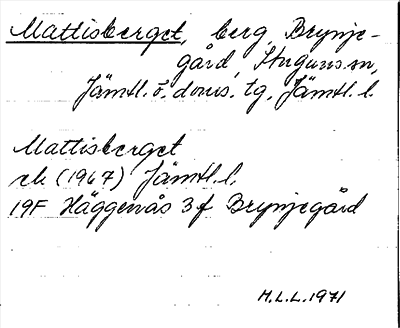 Mattisberget, berg, Brynje-
gård, Stuguns sn,
Jämtl. ö. doms. tg, Jämtl. l.
Mattisberget
ek (1967) Jämtl. l.
19F Häggenås 3f Brynjegård
H.L.L. 1971